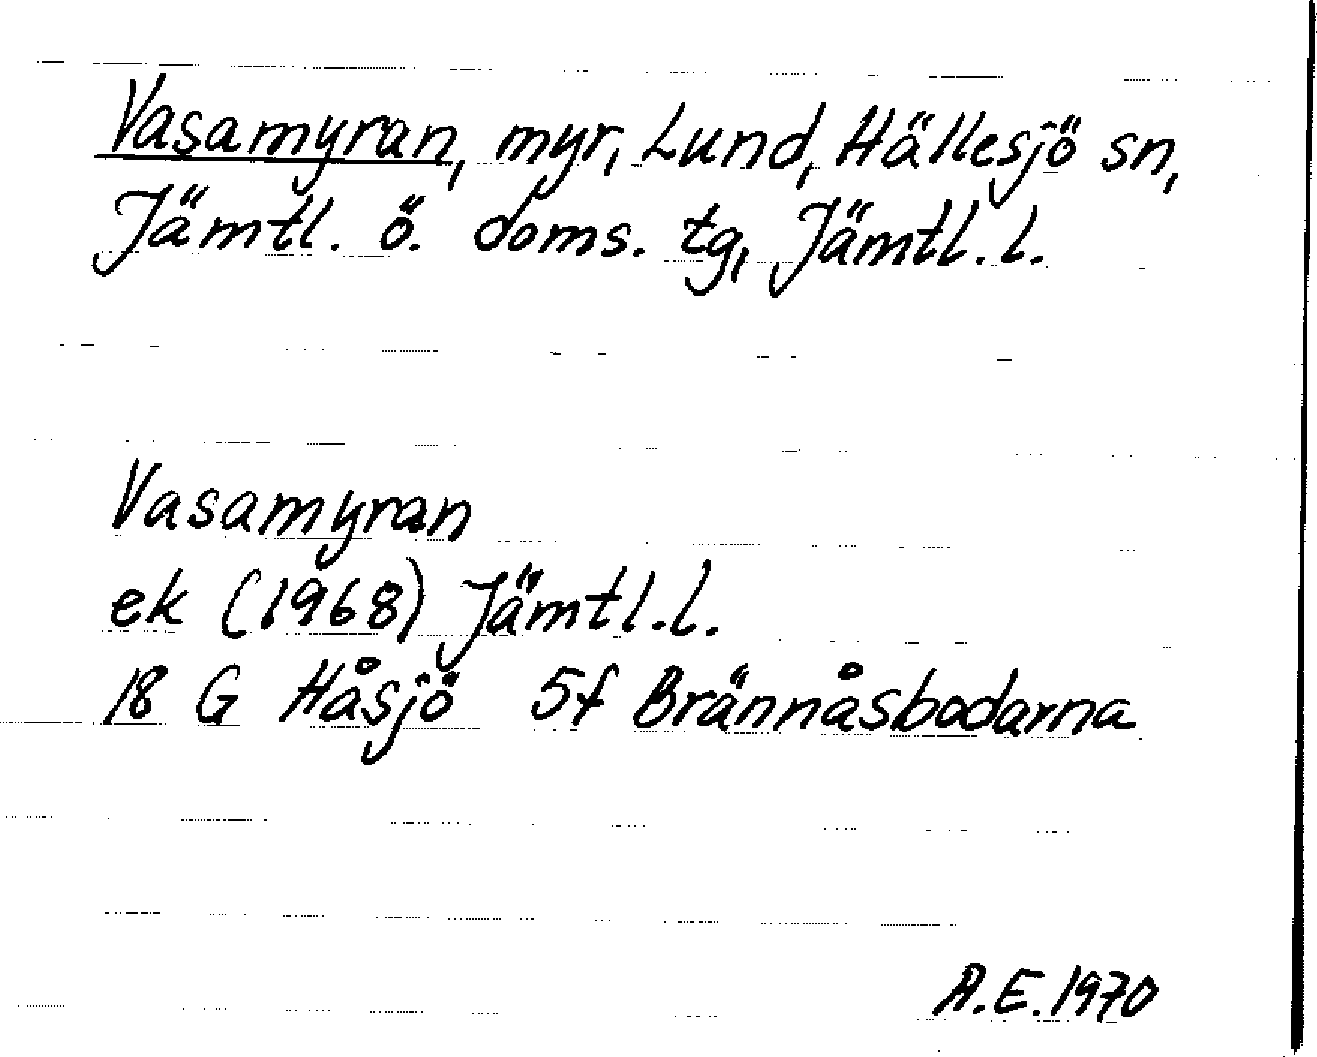 Vasamyran, myr, Lund, Hällesjö sn,
Jämtl. ö. doms. tg, Jämtl. l.
Vasamyran
ek (1968) Jämtl. l.
18 G Håsjö 5f Brännåsbodarna
A.E. 1970